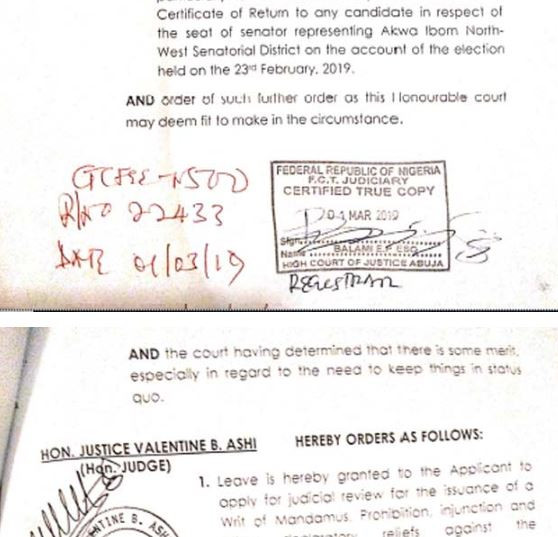 Certificate of Return to any candidate in respect of
the seat of senator representing Akwa Ibom North-
West Senatorial District on the account of the election
held on the 23rd February, 2019.
AND order of such further order as this Honourable court
may deem fit to make in the circumstance.
R/NO 22433
01/03/19
FEDERAL REPUBLIC OF NIGERIA
F.C.T. JUDICIARY
CERTIFIED TRUE COPY
01 MAR 2019
Sign
Name BALAMI E.F ESQ
HIGH COURT OF JUSTICE ABUJA
REGISTRAR
AND the court having determined that there is some merit,
especially in regard to the need to keep things in status
quo.
HON. JUSTICE VALENTINE B. ASHI
(Hon. JUDGE)
HEREBY ORDERS AS FOLLOWS:
1. Leave is hereby granted to the Applicant to
apply for judicial review for the issuance of a
Writ of Mandamus, Prohibition, injunction and
reliefs against the
NTINE B. ASH